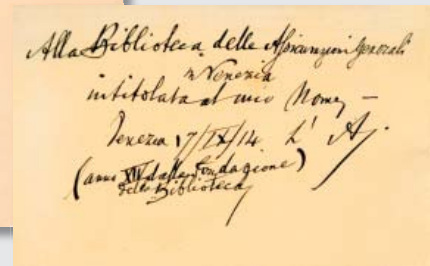 Alla Biblioteca delle Assicurazioni Generali
in Venezia
intitolata al mio Nome –
Venezia 17/IX/14 L' A.
(anno XIII dalla fondazione)
della Biblioteca